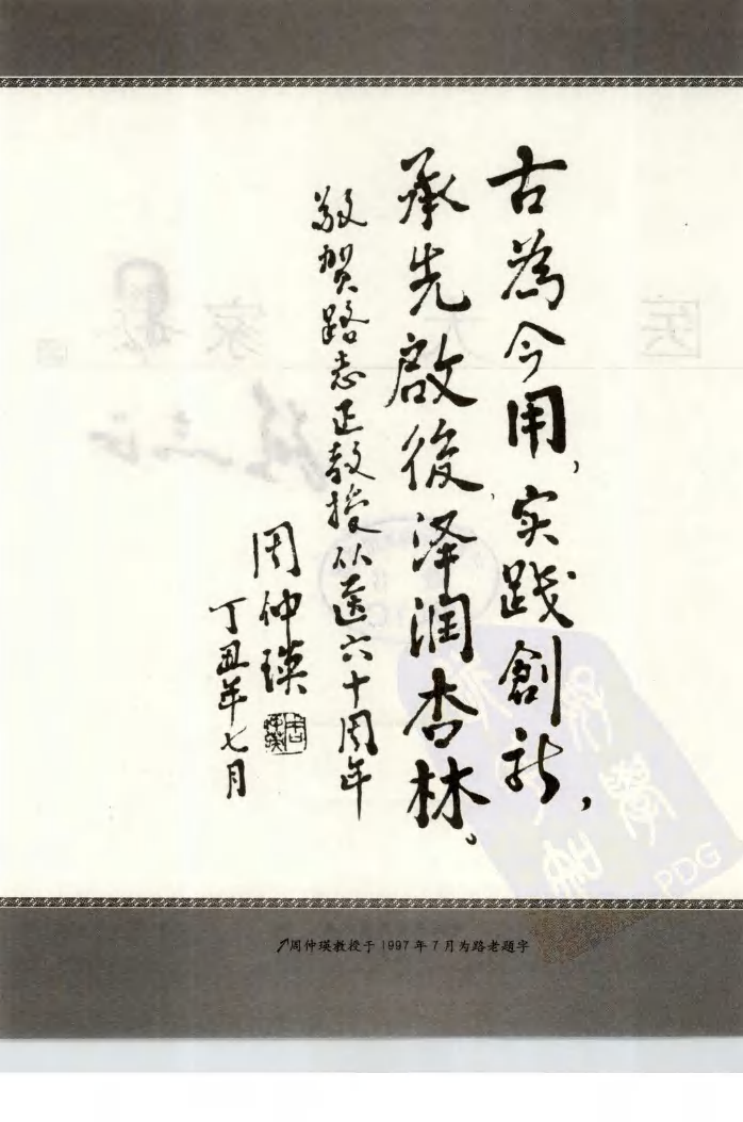 古為今用，实践創新，
承先啟後，泽润杏林。
敬贺路志正教授从医六十周年
周仲瑛
周仲瑛
丁丑年七月
周仲瑛教授于1997年7月为路老题字
PDG